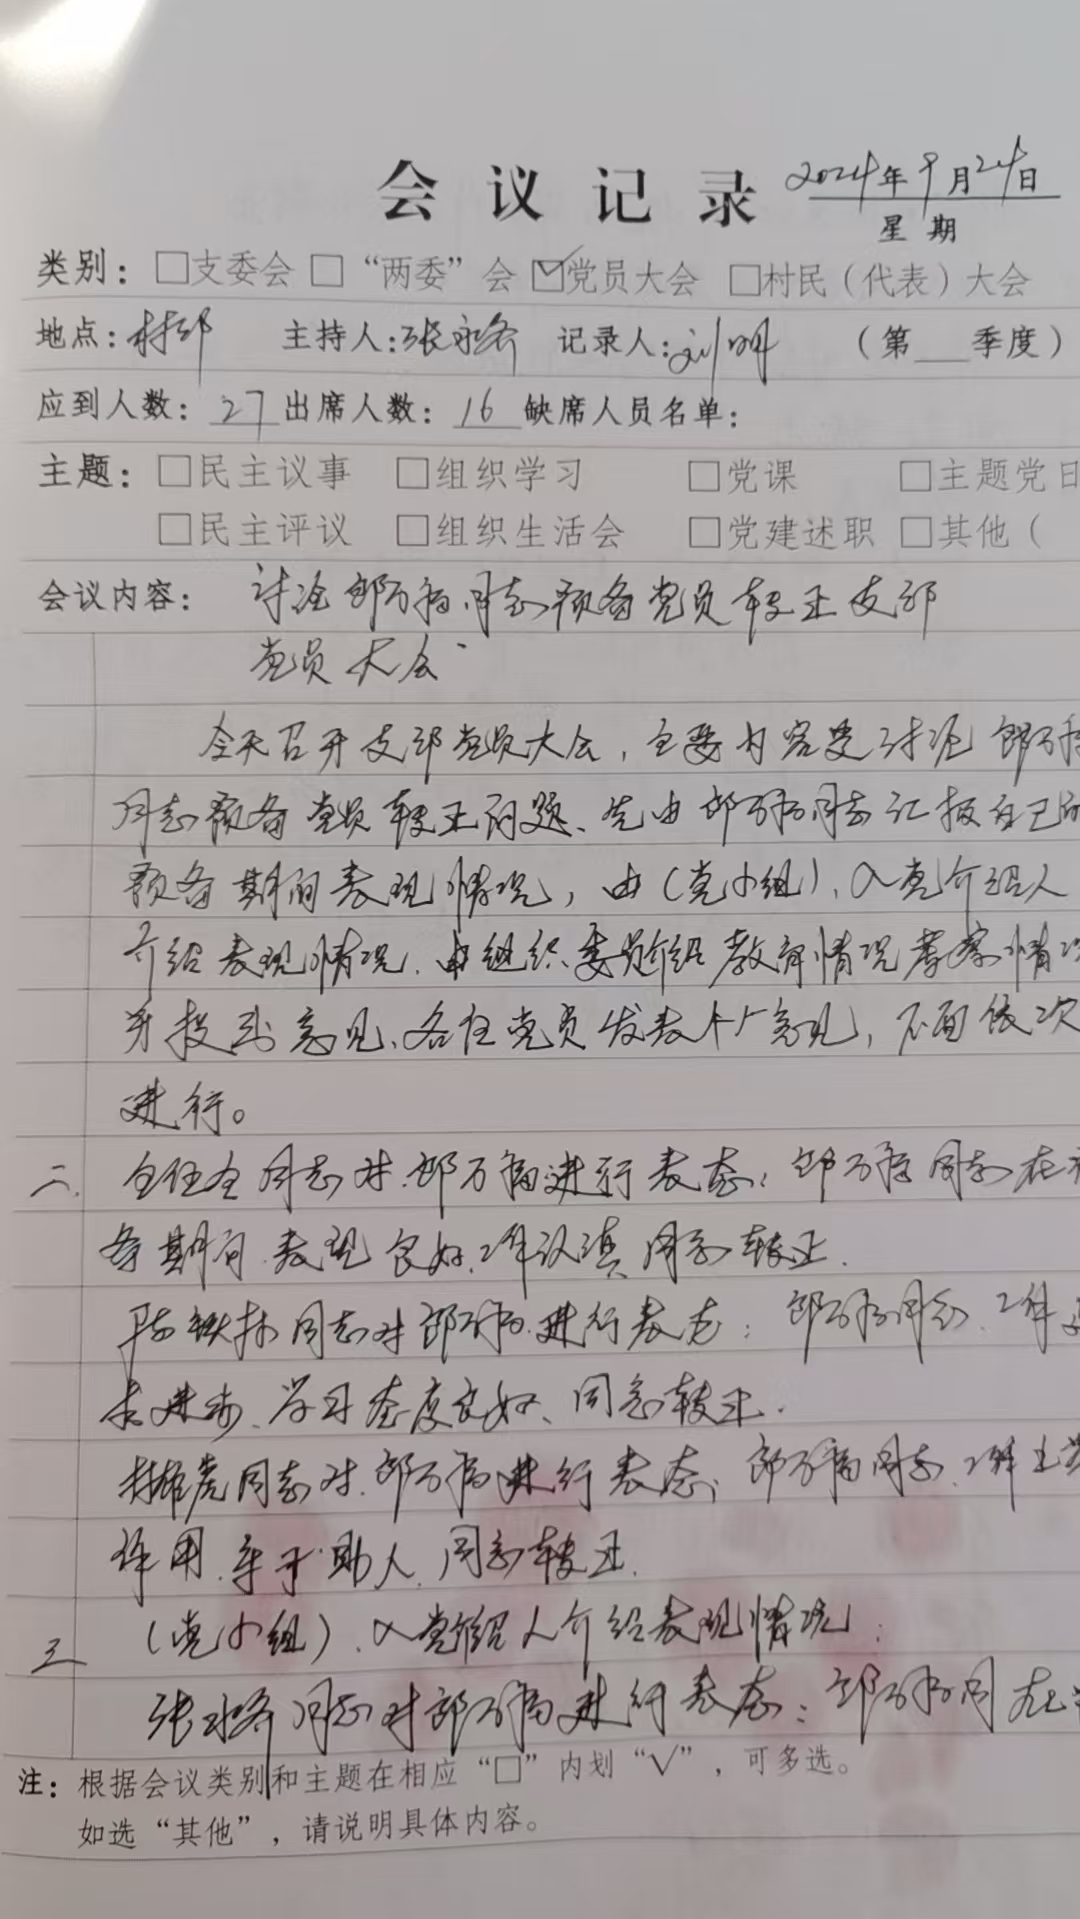 会议记录 2024年9月24日
星期
类别：□支委会 □“两委”会 ☑党员大会 □村民（代表）大会
地点：村部 主持人：张永 记录人：刘明 （第 季度）
应到人数：27出席人数：16缺席人员名单：
主题：□民主议事 □组织学习 □党课 □主题党日
□民主评议 □组织生活会 □党建述职 □其他（
会议内容： 讨论郎万福同志预备党员转正支部
党员大会
今天召开支部党员大会，主要内容是讨论郎万福
同志预备党员转正问题、先由郎万福同志汇报自己的
预备期间表现情况，由（党小组）、入党介绍人
介绍表现情况．由组织委员介绍教育情况考察情况
并提出意见、各位党员发表个人意见，下面依次
进行。
二、 同志对郎万福进行表态：郎万福同志在
备期间表现良好、工作认真 同意转正．
陈 同志对郎万福进行表态：郎万福同志、工作
求进步、学习态度良好、同意转正．
同志对郎万福进行表态：郎万福同志、工作
作用、乐于助人、同意转正．
三 （党小组）、入党介绍人介绍表现情况：
张永 同志对郎万福进行表态：郎万福同 在
注：根据会议类别和主题在相应“□”内划“√”，可多选。
如选“其他”，请说明具体内容。